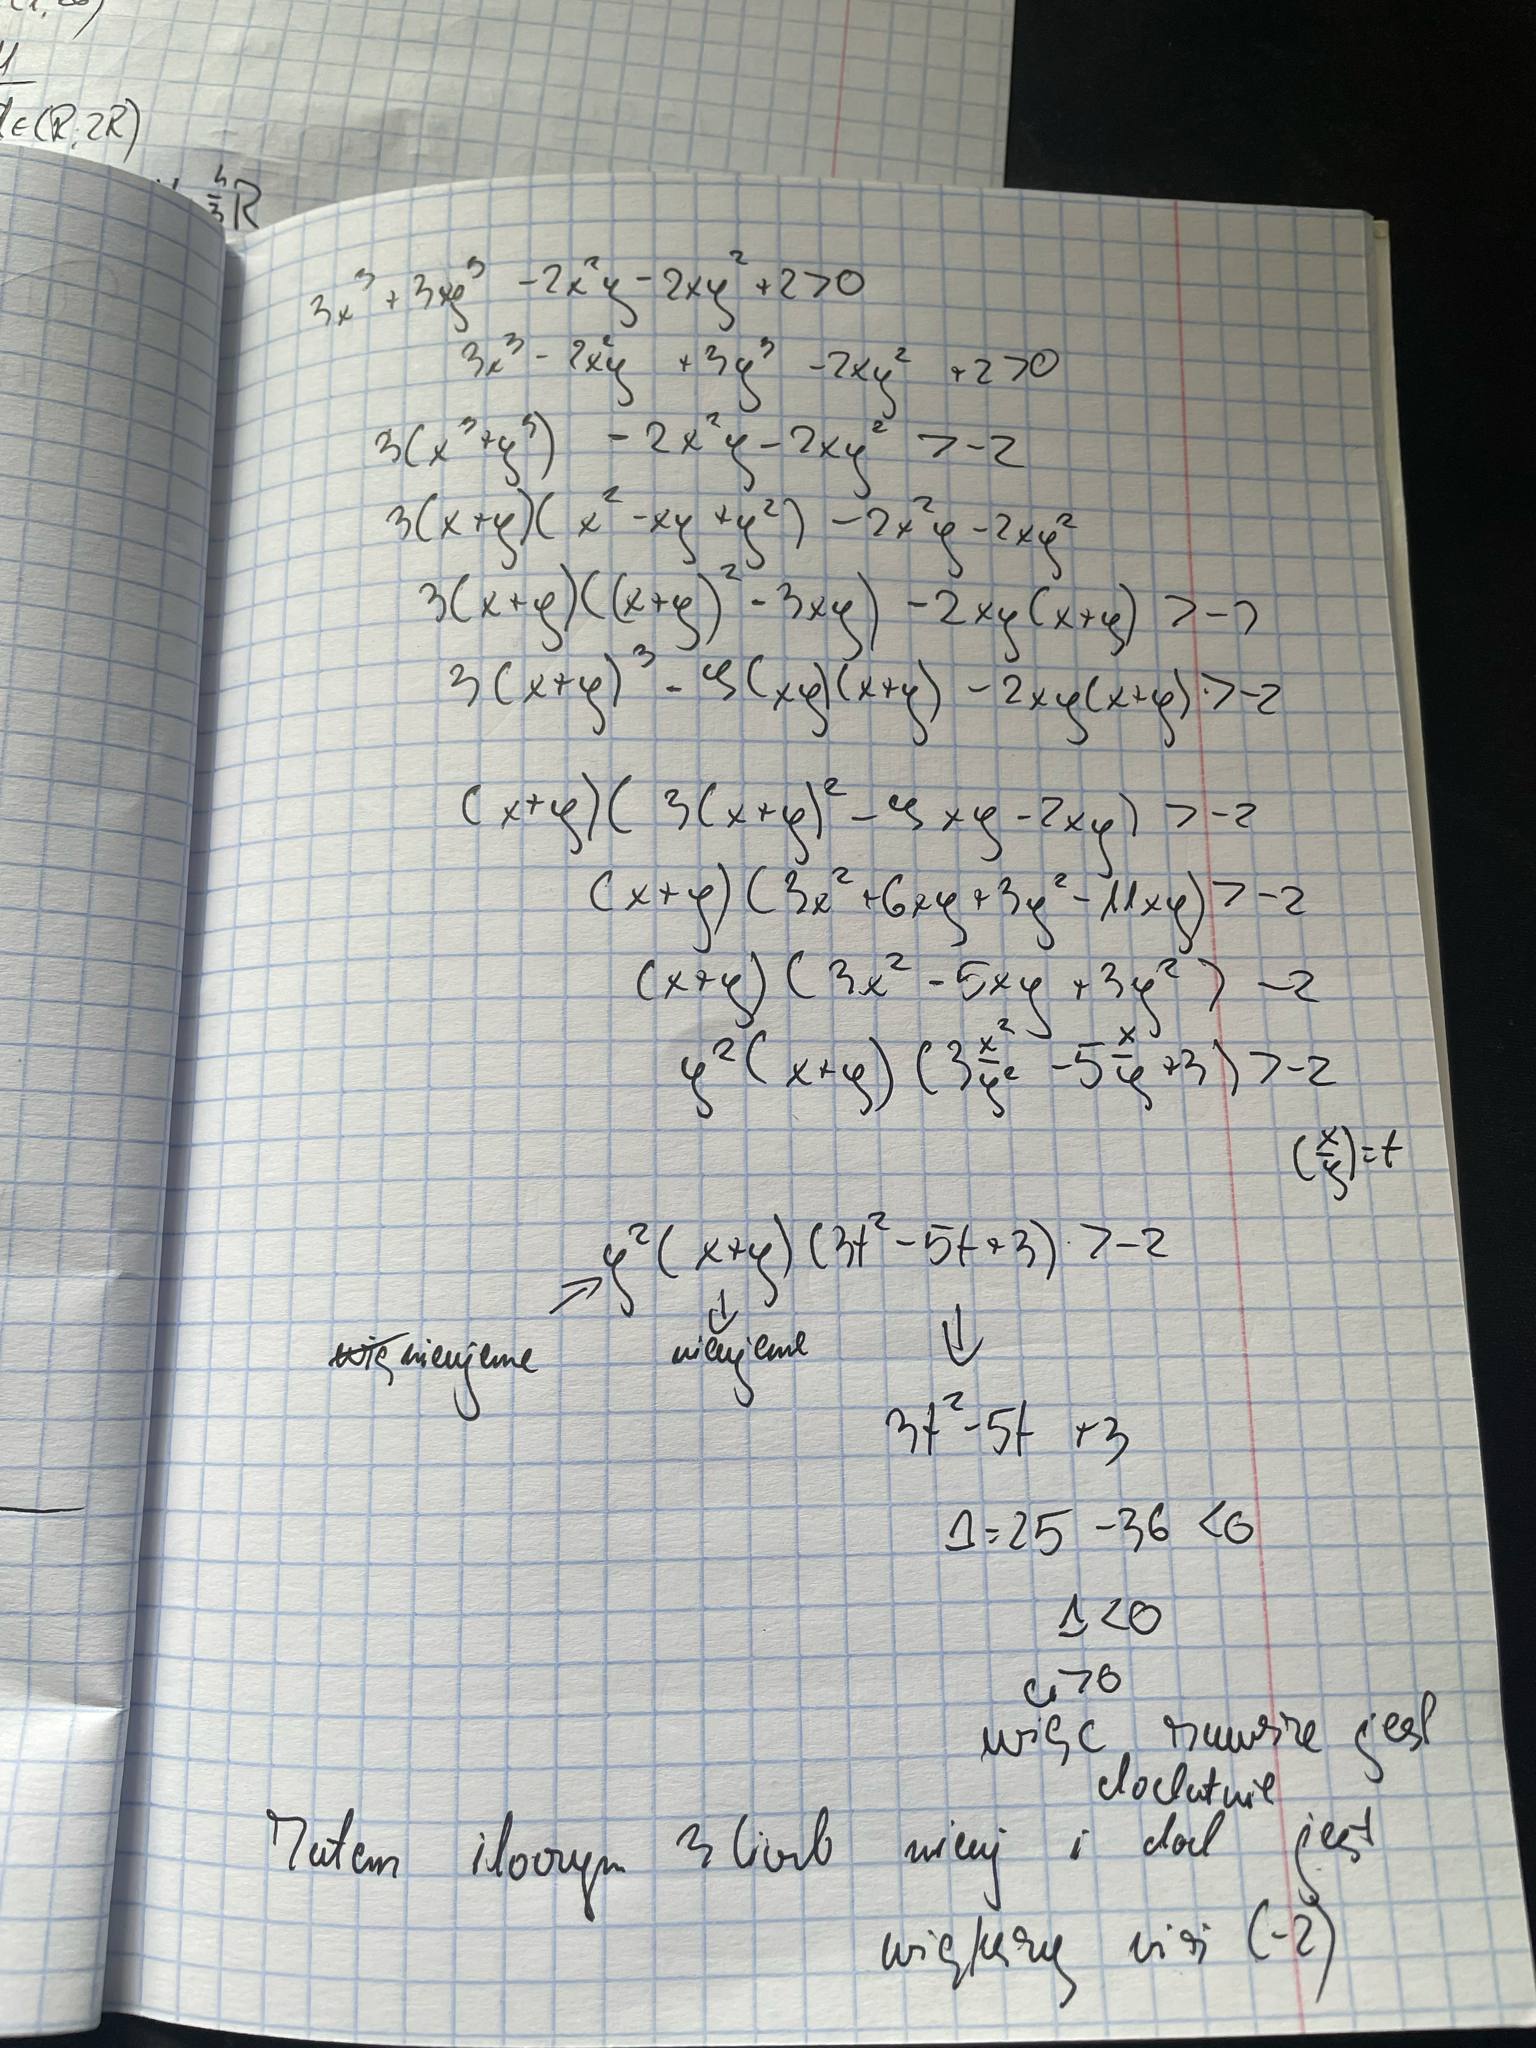 d∈(R; 2R)
4/3 R
3x³ + 3y³ - 2x²y - 2xy² + 2 > 0
3x³ - 2x²y + 3y³ - 2xy² + 2 > 0
3(x³+y³) - 2x²y - 2xy² > -2
3(x+y)(x² - xy + y²) - 2x²y - 2xy²
3(x+y)((x+y)² - 3xy) - 2xy(x+y) > -2
3(x+y)³ - 9(xy)(x+y) - 2xy(x+y) > -2
(x+y)(3(x+y)² - 9xy - 2xy) > -2
(x+y)(3x² + 6xy + 3y² - 11xy) > -2
(x+y)(3x² - 5xy + 3y²) > -2
y²(x+y)(3 x²/y² - 5 x/y + 3) > -2
(x/y) = t
y²(x+y)(3t² - 5t + 3) > -2
nieujemne nieujemne
3t² - 5t + 3
Δ = 25 - 36 < 0
Δ < 0
a > 0
więc zawsze jest
dodatnie
Zatem iloczyn 3 liczb nieuj i dod jest
większy niż (-2)